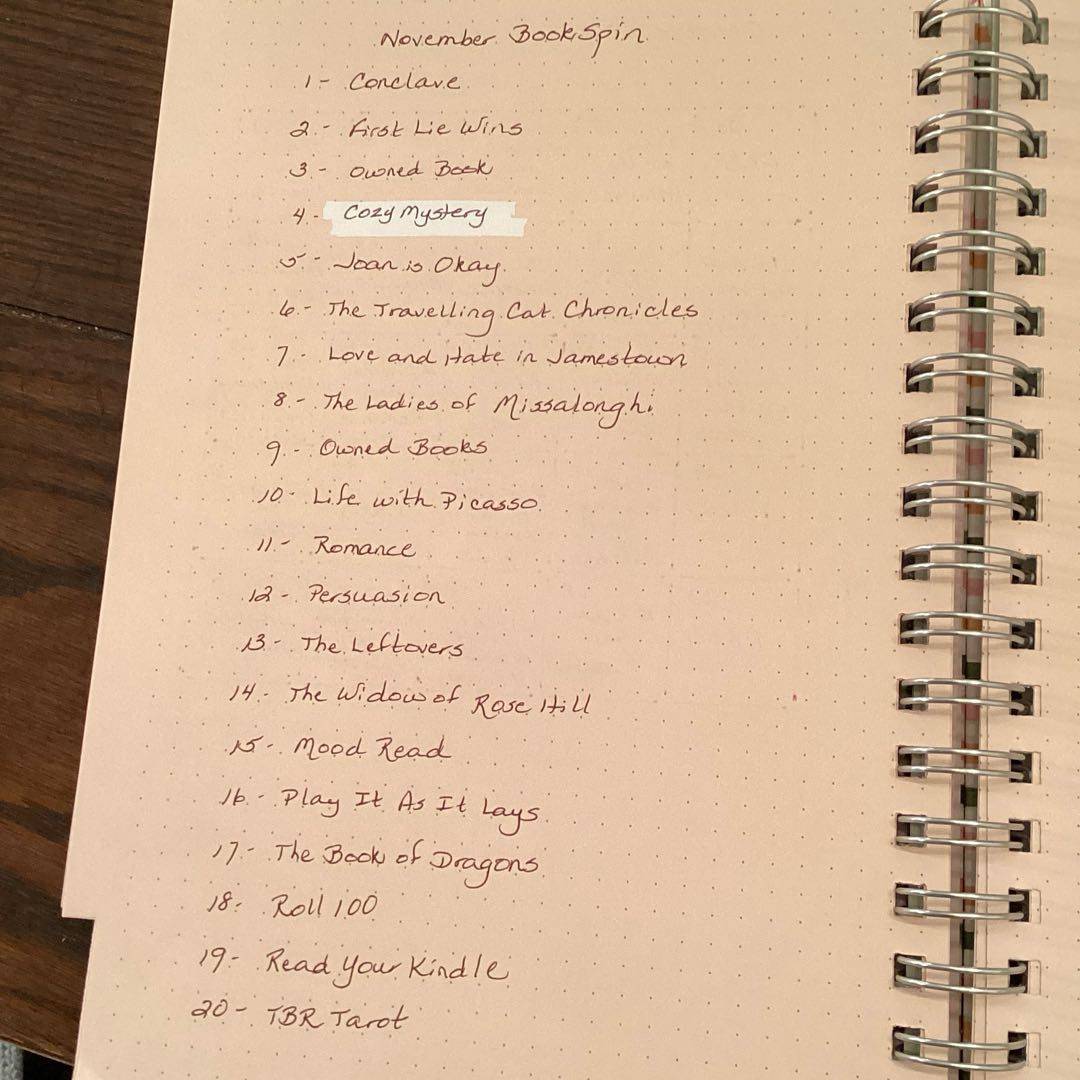 November BookSpin
1- Conclave
2- First Lie Wins
3- Owned Book
4- Cozy Mystery
5- Joan is Okay
6- The Travelling Cat Chronicles
7- Love and Hate in Jamestown
8- The Ladies of Missalonghi
9- Owned Books
10- Life with Picasso
11- Romance
12- Persuasion
13- The Leftovers
14- The Widow of Rose Hill
15- Mood Read
16- Play It As It Lays
17- The Book of Dragons
18- Roll 100
19- Read Your Kindle
20- TBR Tarot